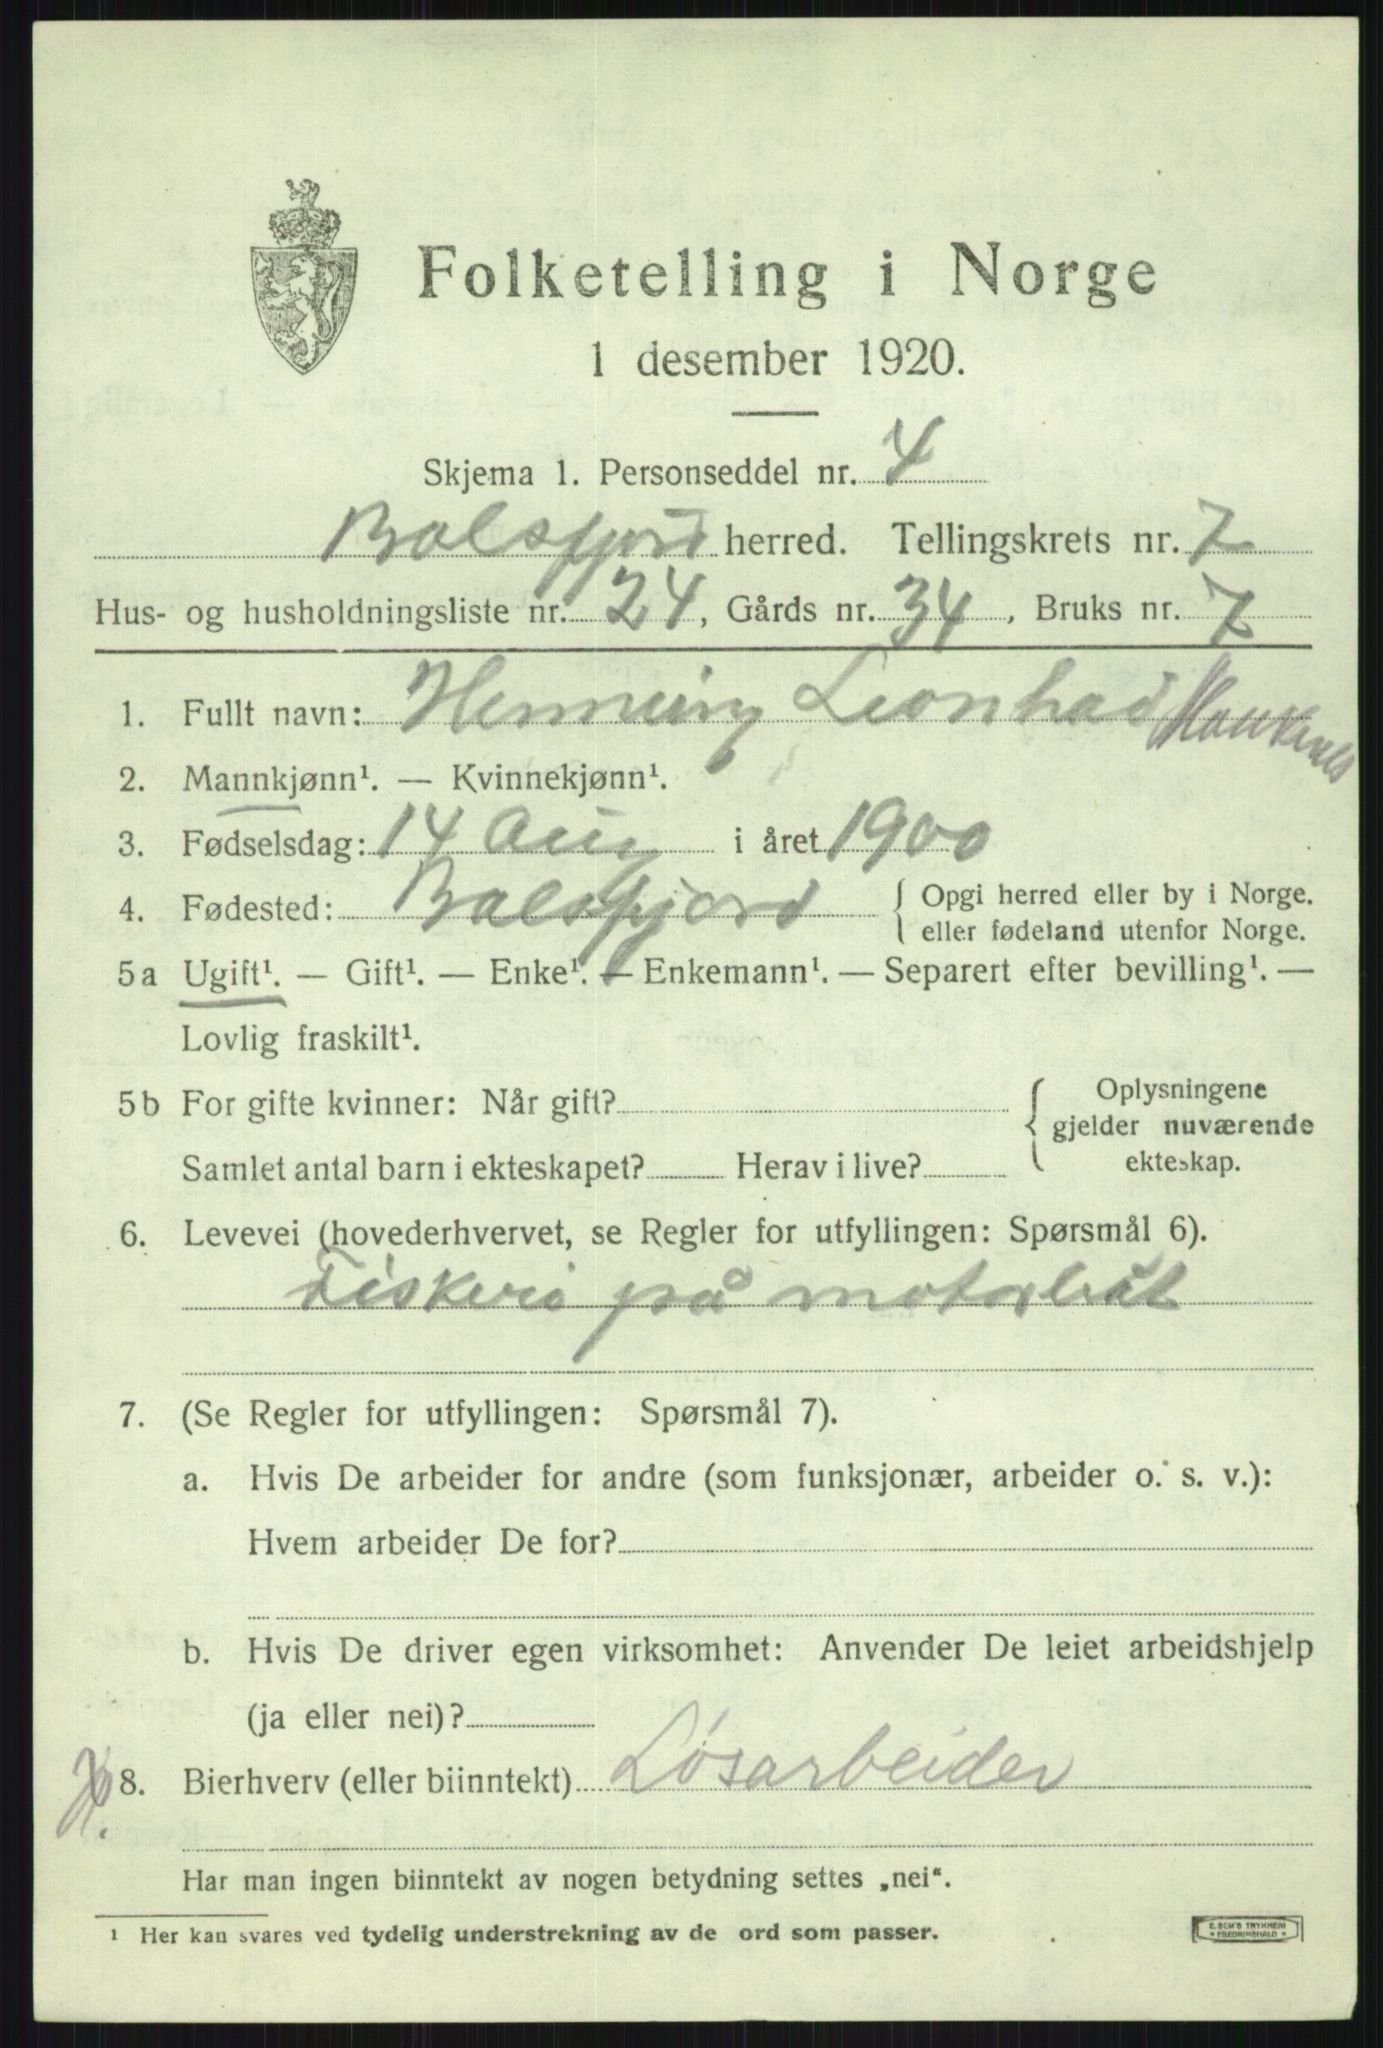 Folketelling i Norge
1 desember 1920.
Skjema 1. Personseddel nr. 4
Balsfjord herred. Tellingskrets nr. 7
Hus- og husholdningsliste nr. 24, Gårds nr. 34, Bruks nr. 7
1. Fullt navn: Henning Leonhad
2. Mannkjønn¹. — Kvinnekjønn¹.
3. Fødselsdag: 14 Aug i året 1900
4. Fødested: Balsfjord { Opgi herred eller by i Norge.
eller fødeland utenfor Norge.
5a Ugift¹. — Gift¹. — Enke¹. — Enkemann¹. — Separert efter bevilling¹. —
Lovlig fraskilt¹.
5b For gifte kvinner: Når gift? { Oplysningene
gjelder nuværende
Samlet antal barn i ekteskapet? Herav i live? ekteskap.
6. Levevei (hovederhvervet, se Regler for utfyllingen: Spørsmål 6).
Fiskeri på motorbåt
7. (Se Regler for utfyllingen: Spørsmål 7).
a. Hvis De arbeider for andre (som funksjonær, arbeider o. s. v.):
Hvem arbeider De for?
b. Hvis De driver egen virksomhet: Anvender De leiet arbeidshjelp
(ja eller nei)?
8. Bierhverv (eller biinntekt) Løsarbeider
Har man ingen biinntekt av nogen betydning settes „nei“.
¹ Her kan svares ved tydelig understrekning av de ord som passer.